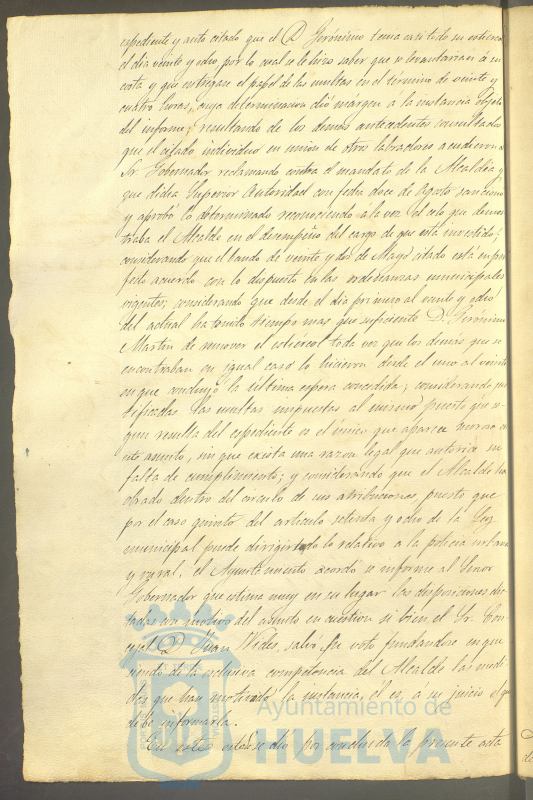 expediente y auto citado que el D. Gerónimo tema casi todo su estiercol
el dia veinte y ocho, por lo cual se le hizo saber que se levantarian á su
costa y que entregase el papel de las multas en el término de veinte y
cuatro horas, cuya determinacion dió margen a la instancia objeto
del informe; resultando de los demas antecedentes consultados
que el citado individuo en union de otros labradores acudieron a
Sr. Gobernador reclamando contra el mandato de la Alcaldia y
que dicha Superior Autoridad con fecha doce de Agosto sancionó
y aprobó lo determinado reconociendo a la vez el celo que demos
traba el Alcalde en el desempeño del cargo de que está investido;
considerando que el bando de veinte y dos de Mayo citado está en per
fecto acuerdo con lo dispuesto en las ordenanzas municipales
vigentes; considerando que desde el dia primero al veinte y ocho
del actual ha tenido tiempo mas que suficiente D. Gerónimo
Martin de remover el estiércol toda vez que los demás que se
encontraban en igual caso lo hicieron desde el uno al veinte
en que concluyó la última espera concedida; considerando jus
tificadas las multas impuestas al mismo puesto que se-
gun resulta del expediente es el único que aparece moroso en
este asunto, sin que exista una razon legal que autorice su
falta de cumplimiento; y considerando que el Alcalde ha
obrado dentro del circulo de sus atribuciones, puesto que
por el caso quinto del articulo setenta y ocho de la Ley
municipal puede dirigir todo lo relativo a la policia urbana
y rural, el Ayuntamiento acordó se informe al Señor
Gobernador que estima muy en su lugar las disposiciones dic
tadas con motivo del asunto en cuestion si bien el Sr. Con
cejal D. Juan salvó su voto fundandose en que
siendo de la esclusiva competencia del Alcalde las medi-
das que han motivado la instancia, él es, a su juicio el que
debe informarla.
En este estado se dió por concluida la presente acta
Ayuntamiento de
HUELVA